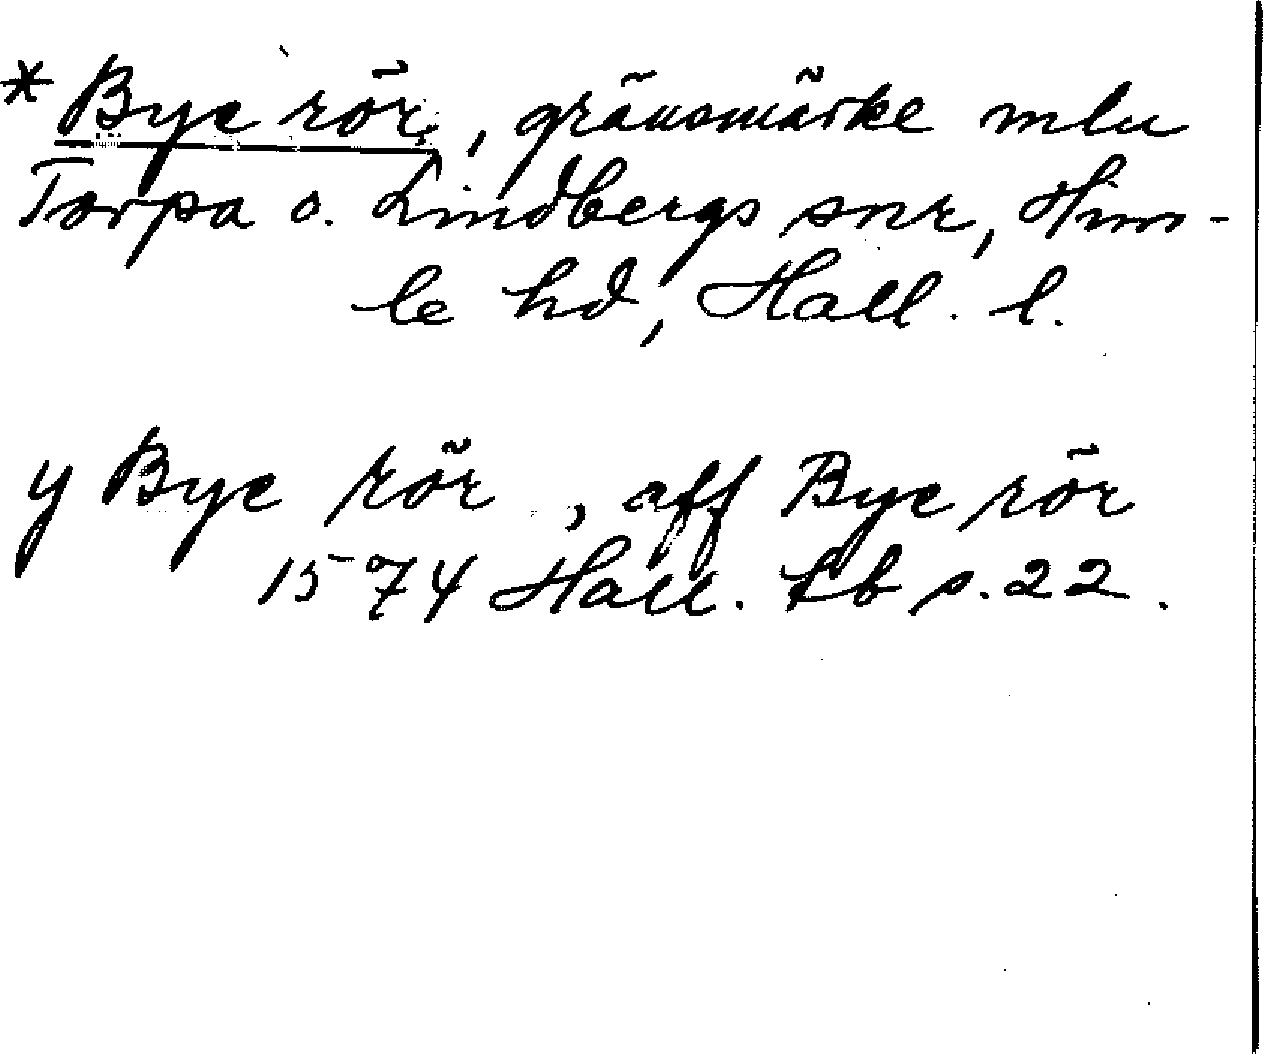 * Bye rör, gränsmärke mlu
Torpa o. Lindbergs snr, Him-
le hd, Hall. l.
y Bye rör, aff Bye rör
1574 Hall. Lb s. 22.